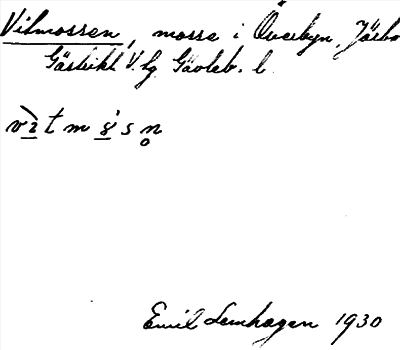 Vitmossen, mosse i Överbyn, Järbo
Gästrikl V. lg Gävleb. l.
vìtmósn̥
Emil Lemhagen 1930